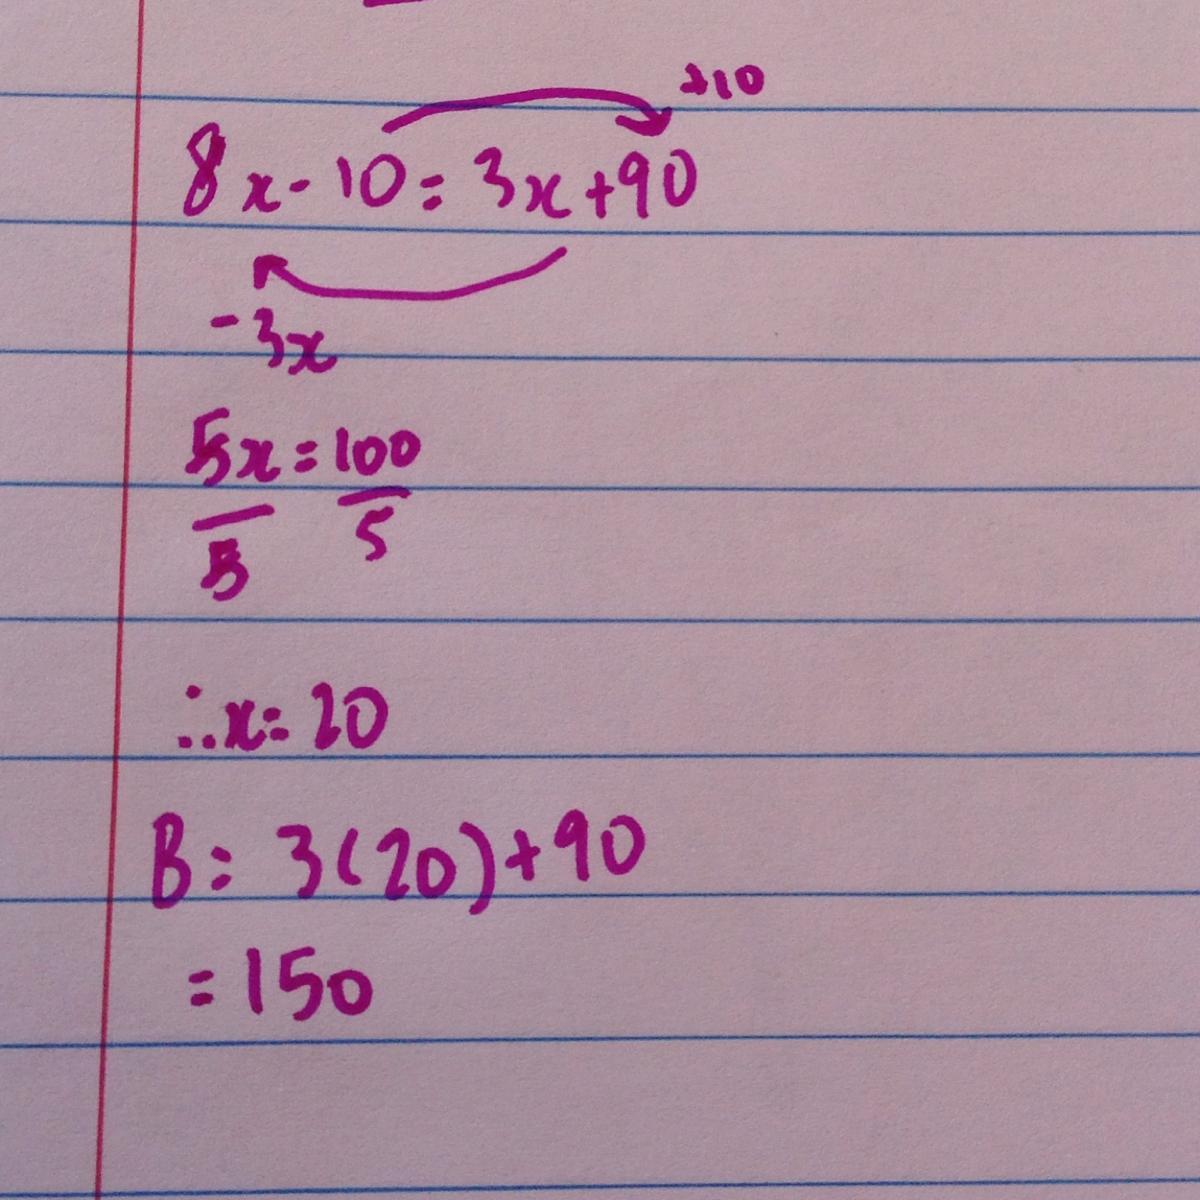 +10
8x-10=3x+90
-3x
5x=100
5 5
∴x=20
B=3(20)+90
=150